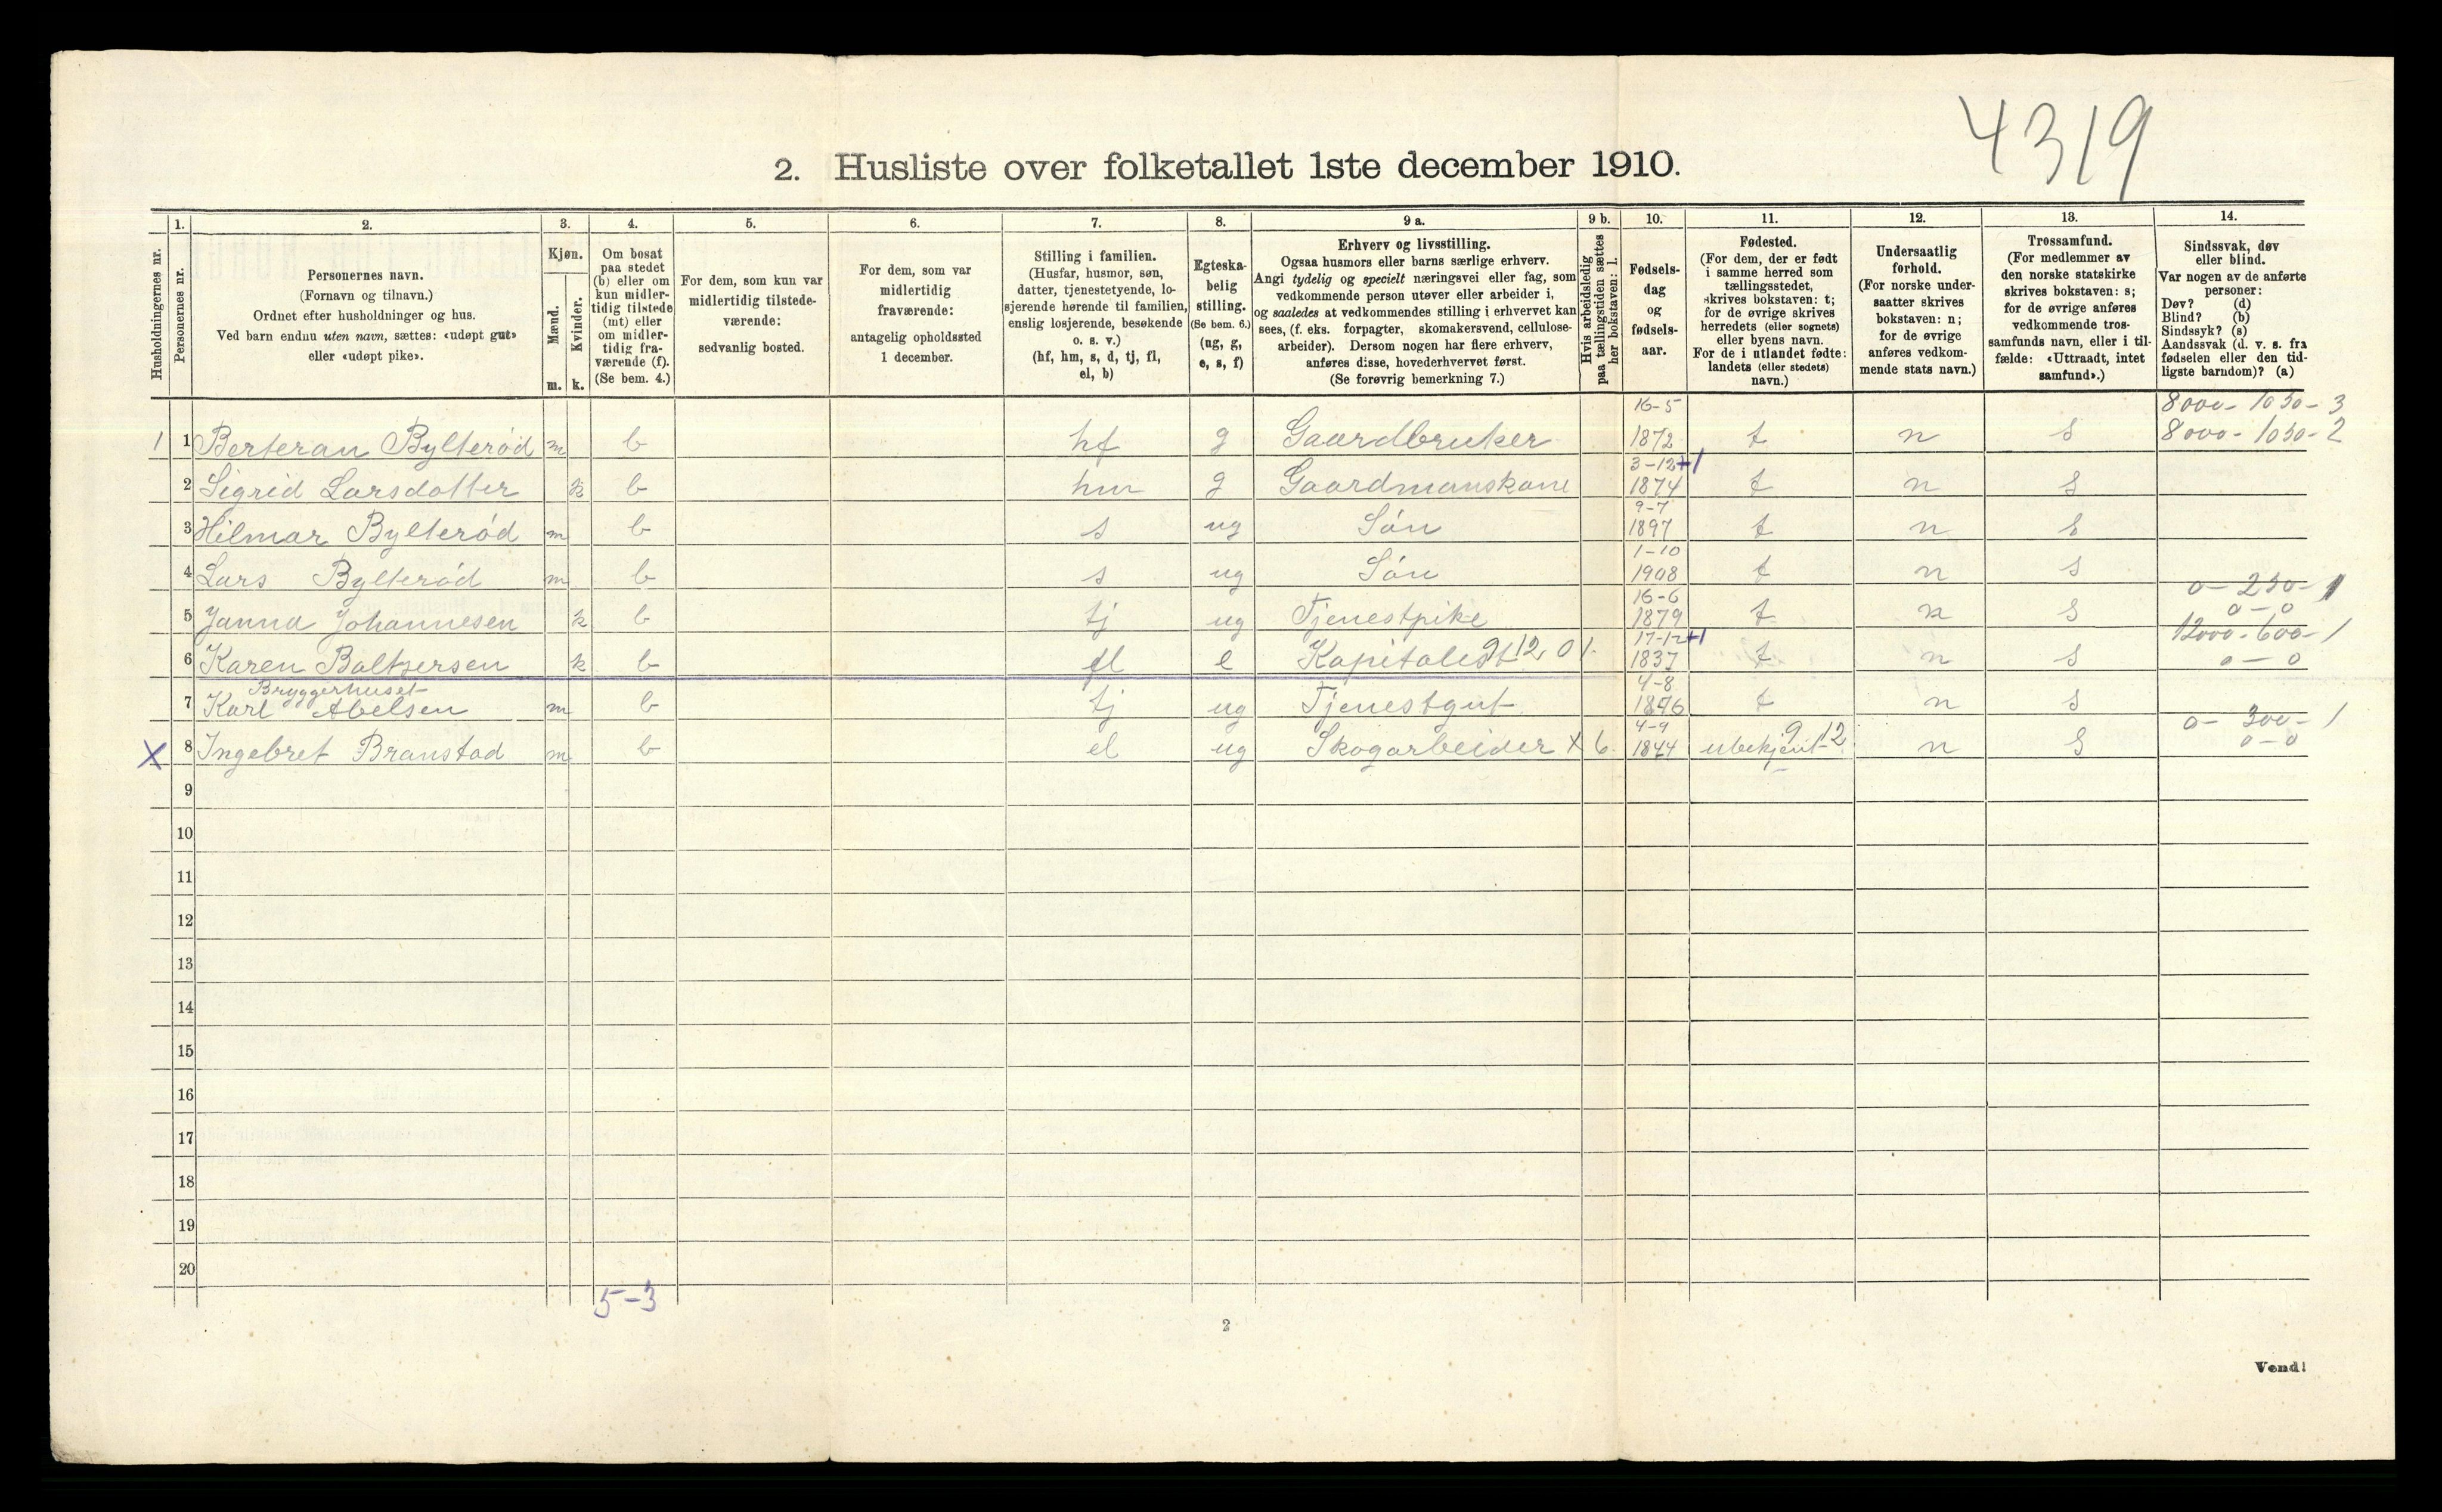 4319
2. Husliste over folketallet 1ste december 1910.
1. 2. 3. 4. 5. 6. 7. 8. 9 a. 9 b. 10. 11. 12. 13. 14.
Husholdningernes nr.
Personernes nr.
Personernes navn.
(Fornavn og tilnavn.)
Ordnet efter husholdninger og hus.
Ved barn endnu uten navn, sættes: «udøpt gut»
eller «udøpt pike».
Kjøn.
Mænd.
Kvinder.
m. k.
Om bosat
paa stedet
(b) eller om
kun midler-
tidig tilstede
(mt) eller
om midler-
tidig fra-
værende (f).
(Se bem. 4.)
For dem, som kun var
midlertidig tilstede-
værende:
sedvanlig bosted.
For dem, som var
midlertidig
fraværende:
antagelig opholdssted
1 december.
Stilling i familien.
(Husfar, husmor, søn,
datter, tjenestetyende, lo-
sjerende hørende til familien,
enslig losjerende, besøkende
o. s. v.)
(hf, hm, s, d, tj, fl,
el, b)
Egteska-
belig
stilling.
(Se bem. 6.)
(ug, g,
e, s, f)
Erhverv og livsstilling.
Ogsaa husmors eller barns særlige erhverv.
Angi tydelig og specielt næringsvei eller fag, som
vedkommende person utøver eller arbeider i,
og saaledes at vedkommendes stilling i erhvervet kan
sees, (f. eks. forpagter, skomakersvend, cellulose-
arbeider). Dersom nogen har flere erhverv,
anføres disse, hovederhvervet først.
(Se forøvrig bemerkning 7.)
Hvis arbeidsledig
paa tællingstiden sættes
her bokstaven: l.
Fødsels-
dag
og
fødsels-
aar.
Fødested.
(For dem, der er født
i samme herred som
tællingsstedet,
skrives bokstaven: t;
for de øvrige skrives
herredets (eller sognets)
eller byens navn.
For de i utlandet fødte:
landets (eller stedets)
navn.)
Undersaatlig
forhold.
(For norske under-
saatter skrives
bokstaven: n;
for de øvrige
anføres vedkom-
mende stats navn.)
Trossamfund.
(For medlemmer av
den norske statskirke
skrives bokstaven: s;
for de øvrige anføres
vedkommende tros-
samfunds navn, eller i til-
fælde: «Uttraadt, intet
samfund».)
Sindssvak, døv
eller blind.
Var nogen av de anførte
personer:
Døv? (d)
Blind? (b)
Sindssyk? (s)
Aandssvak (d. v. s. fra
fødselen eller den tid-
ligste barndom)? (a)
16-5 8000- 1050- 3
1 1 Berteran Bylterød m b hf g Gaardbruker 1872 t n s 8000- 1050- 2
3-12 +1
2 Sigrid Larsdotter k b hm g Gaardmanskone 1874 t n s
9-7
3 Hilmar Bylterød m b s ug Søn 1897 t n s
1-10
4 Lars Bylterød m b s ug Søn 1908 t n s
16-6 0- 250- 1
5 Janna Johannesen k b tj ug Tjenestpike 1879 t n s 0-0
17-12 +1 12000- 600- 1
6 Karen Baltzersen k b fl e Kapitalist 912,01. 1837 t n s 0-0
Bryggerhuset 4-8
7 Karl Abelsen m b tj ug Tjenestgut 1896 t n s
4-9 0- 300- 1
X 8 Ingebret Branstad m b el ug Skogarbeider x 6. 1844 ubekjent 912 n s 0-0
9
10
11
12
13
14
15
16
17
18
19
20
5-3
2
Vend!